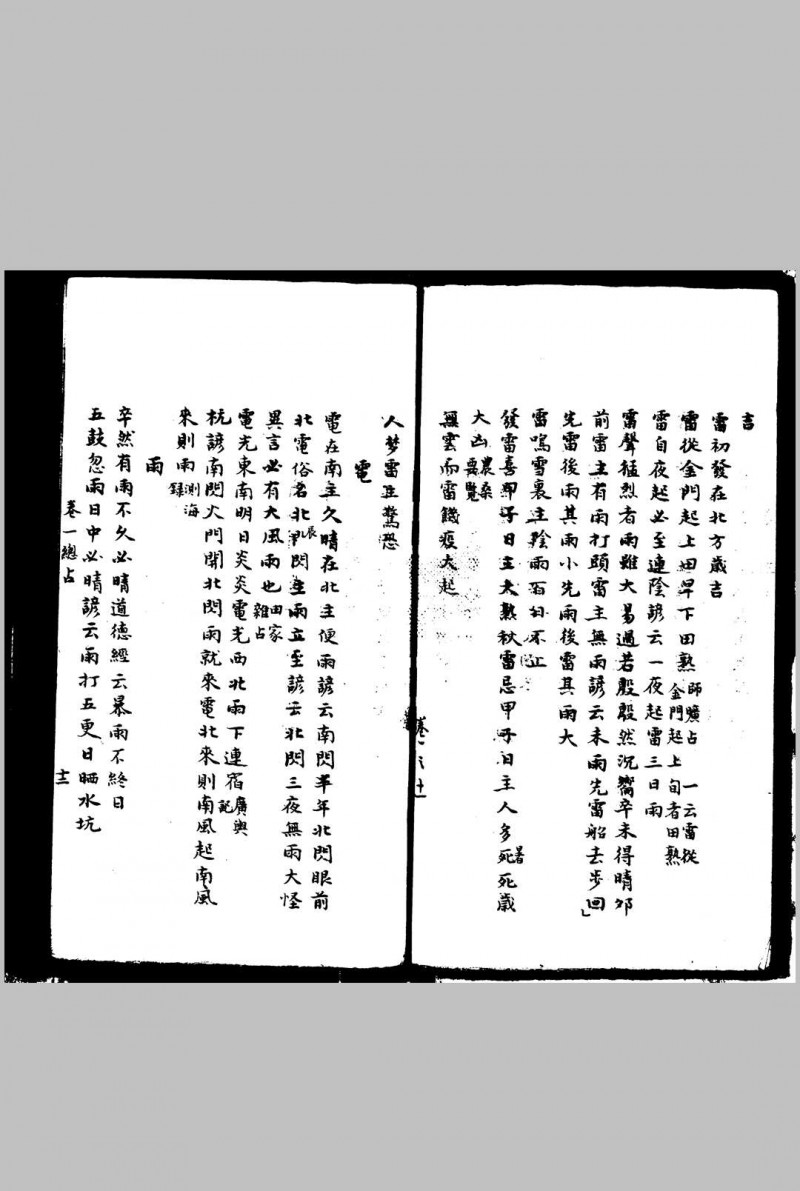 吉
雷初發在北方歲吉
雷從金門起上田旱下田熟師曠占 一云雷從金門起上旬者田熟
雷自夜起必至連陰諺云一夜起雷三日雨
雷聲猛烈者雨雖大易過若殷殷然沉響卒未得晴卯
前雷主有雨打頭雷主無雨諺云未雨先雷船去步回
先雷後雨其雨小先雨後雷其雨大
雷鳴雪裏主陰雨百日不止
發雷喜甲子日主大熟秋雷忌甲子日主人多死暑死歲
大凶農桑要覽
無雲而雷饑疫大起
卷一 十一
人梦雷主驚恐
電
電在南主久晴在北主便雨諺云南閃半年北閃眼前
北電俗名北辰閃主雨立至諺云北閃三夜無雨大怪
異言必有大風雨也田家雜占
電光東南明日炎炎電光西北雨下連宿廣輿記
杭諺南閃火門開北閃雨就來電北來則南風起南風
來則雨測海錄
雨
卒然有雨不久必晴道德經云暴雨不終日
五鼓忽雨日中必晴諺云雨打五更日晒水坑
卷一總占
十二